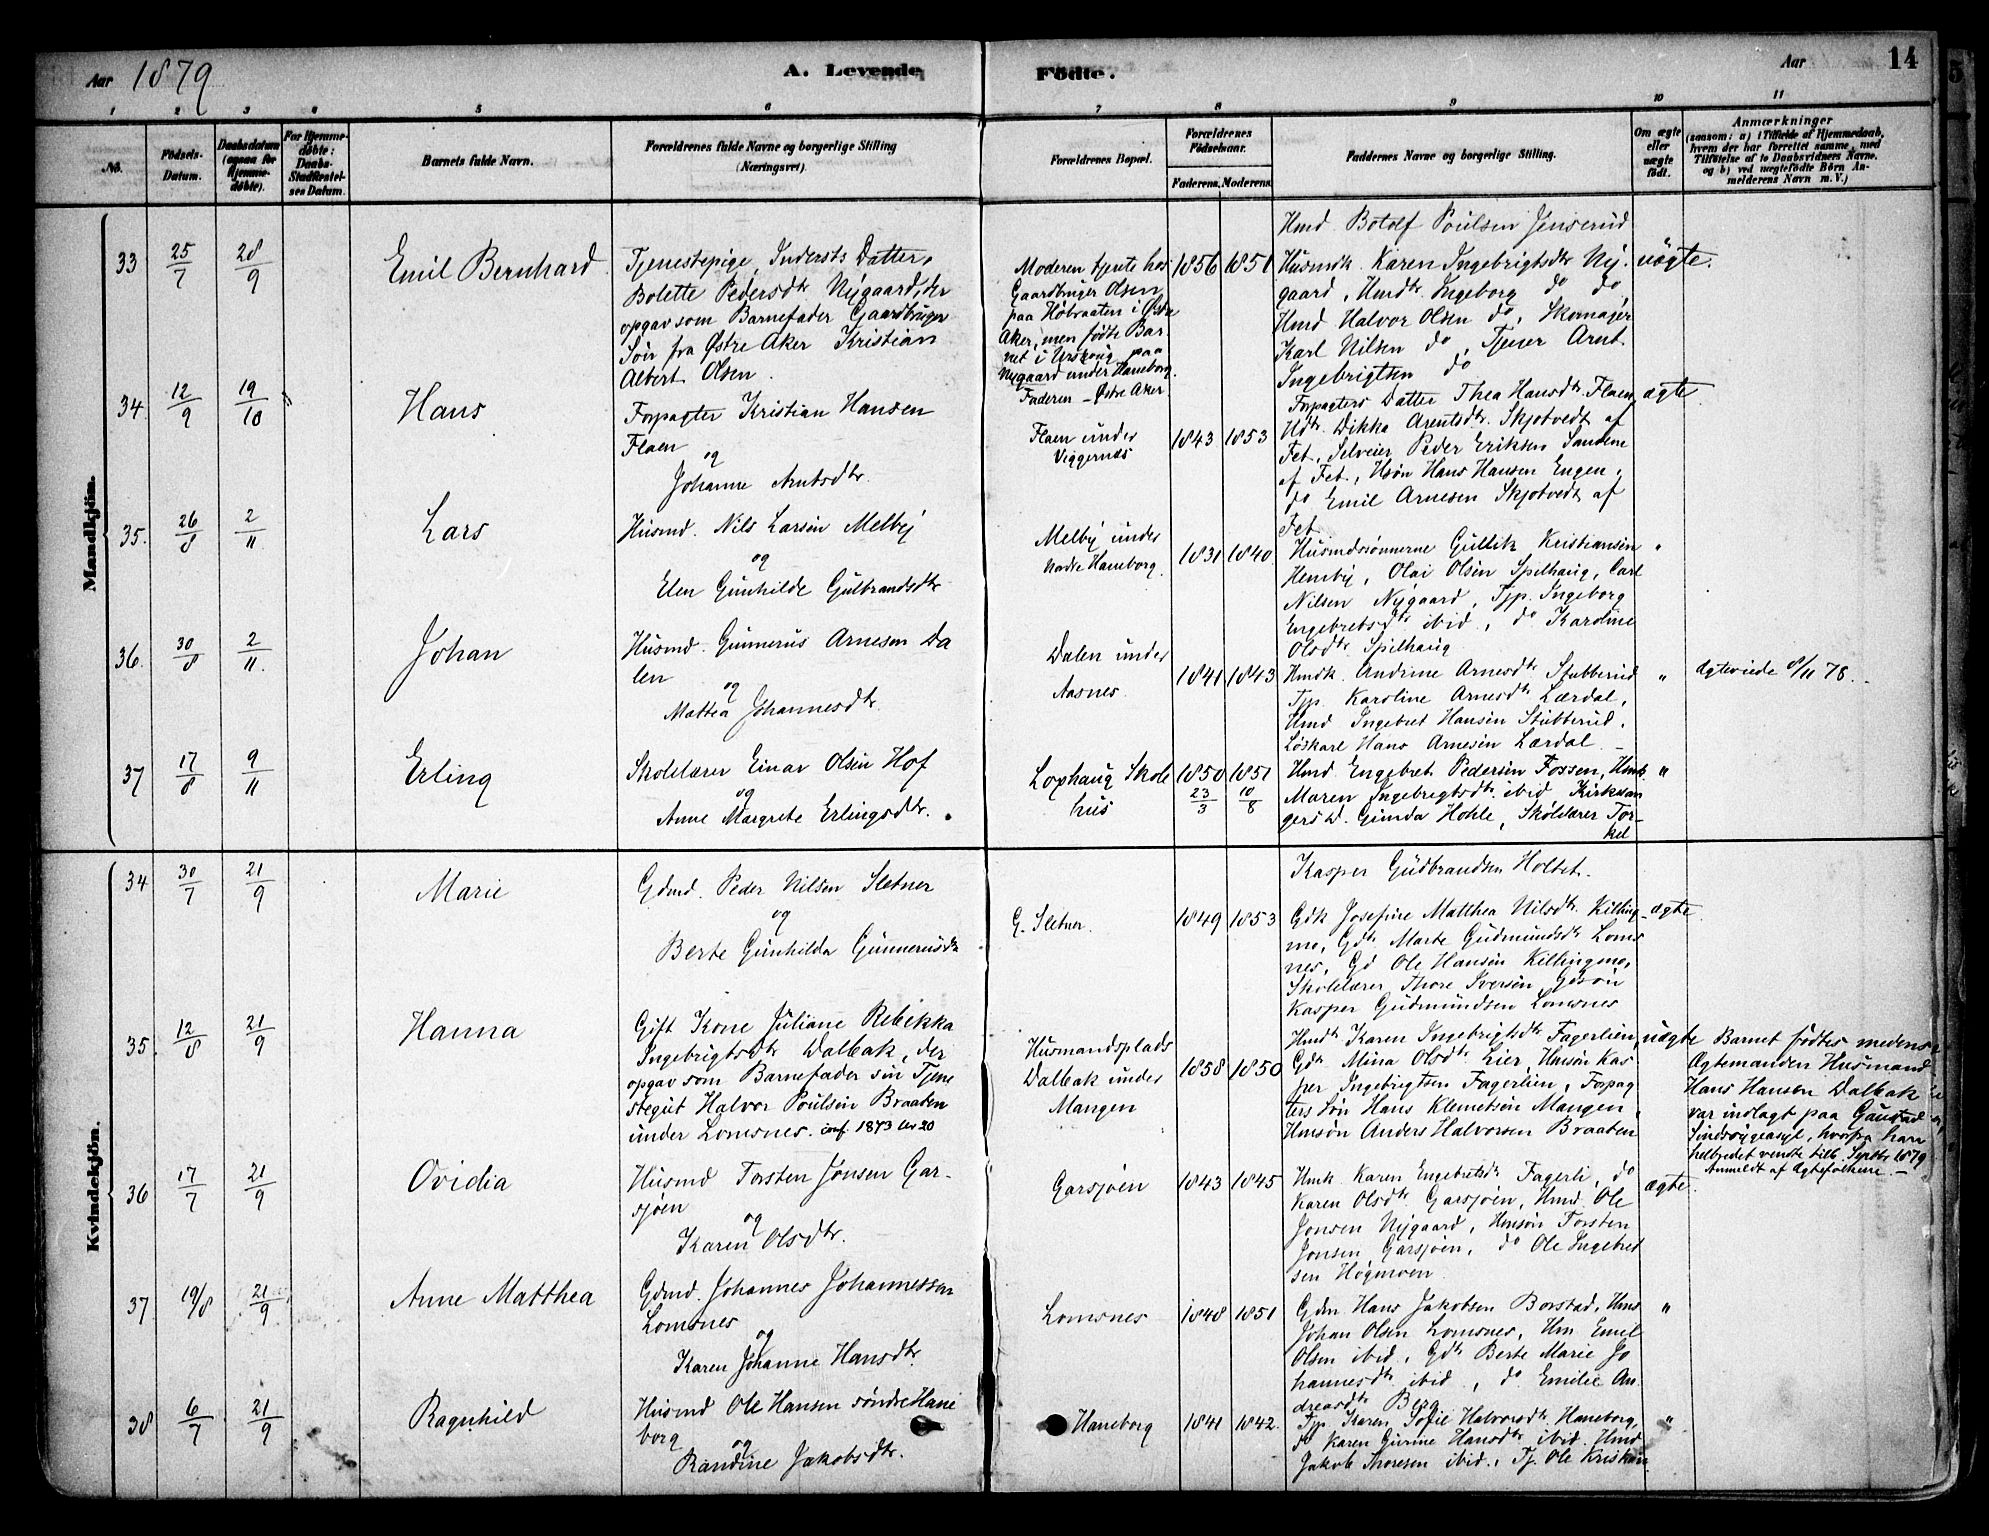 Aar 1879
A. Levende
Fødte.
Aar
14
1 2 3 4 5 6 7 8 9 10 11
No.
Fødsels-Datum.
Daabsdatum (ogsaa for Hjemmedøbte).
For Hjemmedøbte: Daabs-Stadfæstelses Datum.
Barnets fulde Navn.
Forældrenes fulde Navne og borgerlige Stilling (Næringsvei)
Forældrenes Bopæl.
Forældrenes Fødselsaar.
Faderens. Moderens.
Faddernes Navne og borgerlige Stilling.
Om ægte eller uægte født.
Anmærkninger
(saasom: a) i Tilfælde af Hjemmedaab, hvem der har forrettet samme, med Tilføielse af to Daabsvidners Navne, og b) ved uægtefødte Børn Anmelderens Navn m. V.)
Mandkjön.
33 25/7 28/9
Emil Bernhard
Tjenestepige, Indersts Datter,
Bolette Pedersdtr Nygaard, der
opgav som Barnefader Gaardbruger
Søn fra Østre Aker Kristian
Albert Olsen.
Moderen tjente hos
Gaardbruger Olsen
paa Høbraaten i Østre
Aker, men fødte Bar
net i Urskoug paa
Nygaard under Haneborg.
Faderen – Østre Aker
1856 1851
Hmd Botolf Poulsen Jenserud
Husmdk. Karen Ingebrigtsdtr Ny-
gaard, Hmdtr. Ingeborg do do
Hmd Halvor Olsen do, Skomager
Karl Nilsen do, Tjener Arnt
Ingebrigtsen do
uægte.
34 12/9 19/10
Hans
Forpagter Kristian Hansen
Flaen
og
Johanne Arntsdtr.
Flaen under
Viggernæs
1843 1853
Forpagters Datter Thea Hansdtr. Flaen
Udtr. Dikka Arentsdtr. Skjøtvedt af
Fet, Selveier Peder Eriksen Sandem
af Fet, Hsøn Hans Hansen Engen,
do Emil Arnesen Skjøtvedt af
Fet
ægte
35. 26/8 2/11
Lars
Husmd. Nils Larsen Melby
og
Elen Gunhilde Gulbrandsdtr
Melby under
nedre Haneborg.
1831 1840
Husmdsønnerne Gullik Kristiansen
Hemby, Olai Olsen Spilhaug, Carl
Nilsen Nygaard, Tjp. Ingeborg
Engebretsdtr ibid, do Karoline
Olsdtr. Spilhaug
"
36. 30/8 2/11.
Johan
Husmd. Gunnerus Arnesen Da
len
og
Mathea Johannesdtr.
Dalen under
Aasnes.
1841 1843
Hmdk. Andrine Arnesdtr Stubberud
Tjp Karoline Arnesdtr Lærdal,
Hmd Ingebret Hansen Stubberud,
Løskarl Hans Arnesen Lærdal –
"
Ægteviede 8/11 78. –
37 17/8 9/11
Erling
Skolelærer Einar Olsen Hof
og
Anne Margrete Erlingsdtr.
Lophaug Skole
hus
1850 1851
23/3 10/8
Hmd. Engebret Pedersen Fossen, Hmk
Maren Ingebrigtsdtr. ibid Kirkesan
gers D. Gunda Hohle, Skolelærer Tor-
kel
"
Kvindekjön.
34 30/7 21/9
Marie
Gdmd. Peder Nilsen Sletner
og
Berte Gunhilda Gunnerusdtr
G. Sletner.
1849 1853
Kasper Gudbrandsen Holtet.
Gdk Josefine Matthea Nilsdtr. Killing-
mo, Gdtr Marte Gudmundsdtr Loms
nes, Gd Ole Hansen Killingmo,
Skolelærer Thore Iversen Gdsøn
Kasper Gudmundsen Lomsnes
ægte
35. 12/8 21/9
Hanna
Gift Kone Juliane Rebekka
Ingebrigtsdtr Dalbak, der
opgav som Barnefader sin Tjene
stegut Halvor Poulsen Braaten
under Lomsnes. conf. 1873 No 20
Husmandsplads
Dalbak under
Mangen
1858 1850
Hmdtr. Karen Ingebrigtsdtr Fagerlien
Gdtr Mina Olsdtr Lier, Hmsøn Kas
per Ingebrigtsen Fagerlien, Forpag
ters Søn Hans Klemetsen Mangen,
Hmsøn Anders Halvorsen Braaten
uægte
Barnet fødtes medens
Ægtemanden Husmand
Hans Hansen Dalbak
var indlagt paa Gaustad
Sindssygeasyl, hvorfra han
helbredet vendte tilb. Septbr 1879
Anmeldt af Ægtefolkene. –
36 17/7 21/9
Ovidia
Husmd Torsten Jonsen Gar-
sjøen
og
Karen Olsdtr.
Garsjøen
1843 1845
Hmk Karen Engebretsdtr Fagerli, do
Karen Olsdtr Garsjøen, Hmd. Ole
Jonsen Nygaard, Hmsøn Torsten
Jonsen Garsjøen, do Ole Ingebret
sen Høgmoen
ægte.
37 19/8 21/9
Anne Matthea
Gdmd. Johannes Johannessen
Lomsnes
og
Karen Johanne Hansdtr.
Lomsnes
1848 1851
Gdm Hans Jakobsen Borstad, Hmd
Johan Olsen Lomsnes, Hm Emil
Olsen ibid, Gdtr Berte Marie Jo
hannesdtr ibid, do Emilie An
dreasdtr Berg
"
38 6/7 21/9
Ragnhild
Husmd Ole Hansen søndre Hane
borg
og
Randine Jakobsdtr.
Haneborg
1841 1842.
Tjp Karen Sofie Halvorsdtr. Haneborg,
do Karen Gurine Hansdtr ibid. Hmd
Jakob Thoresen ibid., Tj. Ole Kristian
"